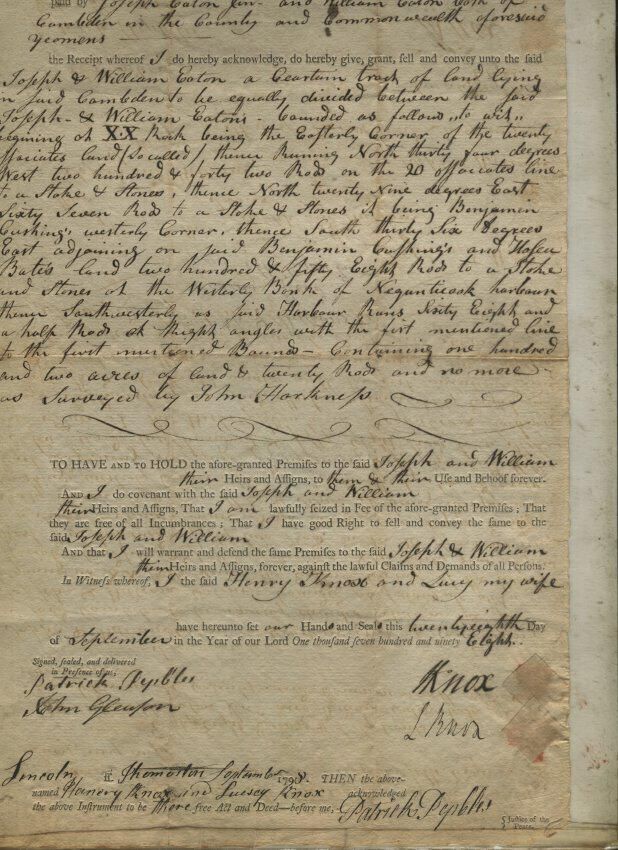 paid by Joseph Eaton Jun.r and William Eaton both of
Cambden in the County and Commonwealth aforesaid
Yeomens
the Receipt whereof I do hereby acknowledge, do hereby give, grant, sell and convey unto the said
Joseph & William Eaton a Ceartain tract of land lying
in said Cambden to be equally divided between the said
Joseph & William Eatons bounded as follows "to wit"
begining at X·X Rock being the Easterly Corner of the twenty
associates land (so called) thence Runing North thirty four degrees
West two hundred & forty two Rods on the 20 associates line
to a Stake & Stones, thence North twenty Nine degrees East
Sixty Seven Rods to a Stake & Stones it being Benjamin
Cushing's westerly Corner, thence South thirty Six degrees
East adjoining on said Benjamin Cushing's and Hosea
Bates land two hundred & fifty Eeight Rods to a Stake
and Stones at the Westerly Bank of Negunticook harbour
thence Southwesterly as said Harbour Runs Sixity Eeight and
a half Rods at Reight angles with the first mentioned line
to the first mentioned Bounds – Containing one hundred
and two acres of land & twenty Rods and no more
as Surveyed by John Harkness
TO HAVE AND TO HOLD the afore-granted Premises to the said Joseph and William
their Heirs and Assigns, to them & their Use and Behoof forever.
AND I do covenant with the said Joseph and William
their Heirs and Assigns, That I am lawfully seized in Fee of the afore-granted Premises ; That
they are free of all Incumbrances ; That I have good Right to sell and convey the same to the
said Joseph and William
AND that I will warrant and defend the same Premises to the said Joseph & William
their Heirs and Assigns, forever, against the lawful Claims and Demands of all Persons.
In Witness whereof, I the said Henry Knox and Lucy my wife
have hereunto set our Hands and Seals this twentyeighth Day
of September in the Year of our Lord One thousand seven hundred and ninety Eeight.
Signed, sealed, and delivered
in Presence of us,
Patrick Pebbles
John Gleason
HKnox
L Knox
Lincoln ss. Thomaston September 1798. THEN the above-
named Hanery Knox and Lucey Knox acknowledged
the above Instrument to be there free Act and Deed—before me,
Patrick Pebbles
Justice of the
Peace.